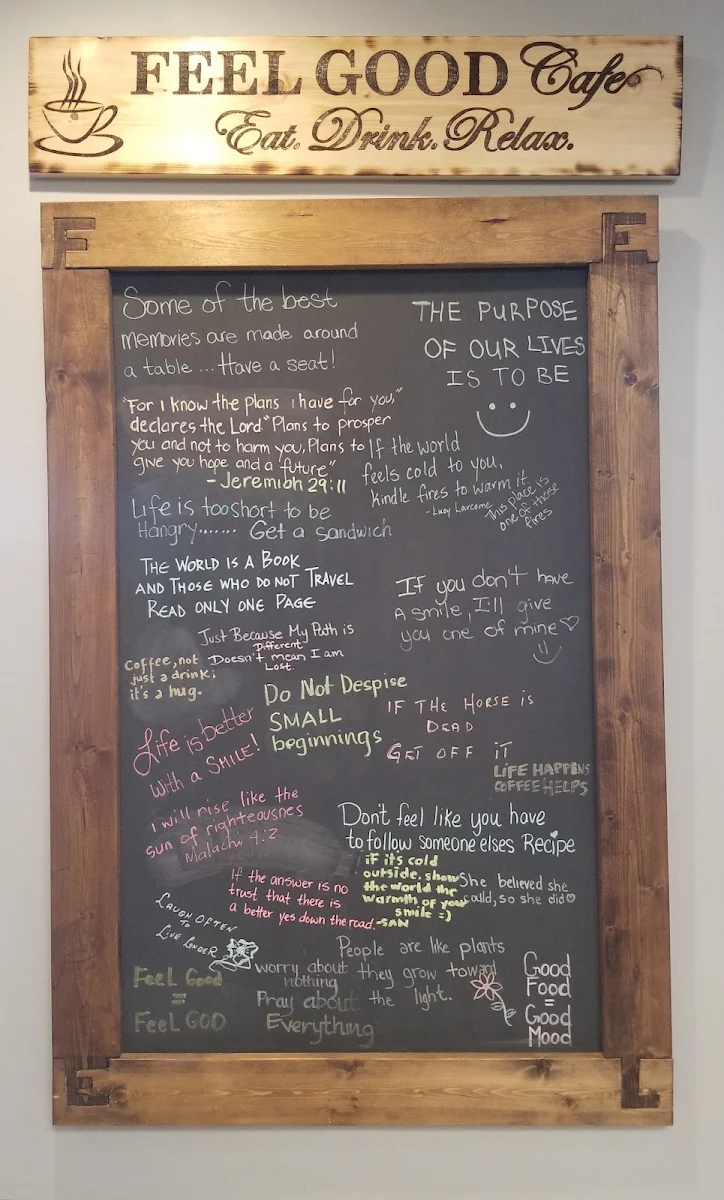 FEEL GOOD Cafe
Eat. Drink. Relax.
F
E
Some of the best
memories are made around
a table ... Have a seat!
THE PURPOSE
OF OUR LIVES
IS TO BE
"For I know the Plans i have for you,"
declares the Lord." Plans to prosper
you and not to harm you, Plans to
give you hope and a future"
- Jeremiah 29:11
If the world
feels cold to you,
kindle fires to warm it.
- Lucy Larcome
This place is
one of those
fires
Life is too short to be
Hangry....... Get a sandwich
THE WORLD IS A BOOK
AND THOSE WHO DO NOT TRAVEL
READ ONLY ONE PAGE
If you don't have
A smile, I'll give
you one of mine♡
Just Because My Path is
Different
Doesn't mean I am
Lost.
Coffee, not
just a drink;
it's a hug.
Do Not Despise
SMALL
beginnings
IF THE HORSE IS
DEAD
GET OFF IT
Life is better
with a SMILE!
LIFE HAPPENS
COFFEE HELPS
I will rise like the
sun of righteousnes
Malachi 4:2
Don't feel like you have
to follow someone elses Recipe
If the answer is no
trust that there is
a better yes down the road.
iF its cold
outside. show
the world the
warmth of your
smile =)
-SAN
She believed she
could, so she did♡
LAUGH OFTEN
TO
LIVE LONGER
People are like plants
they grow toward
the light.
Feel Good
=
Feel GOD
worry about
nothing
Pray about
Everything
Good
Food
=
Good
Mood
E
L